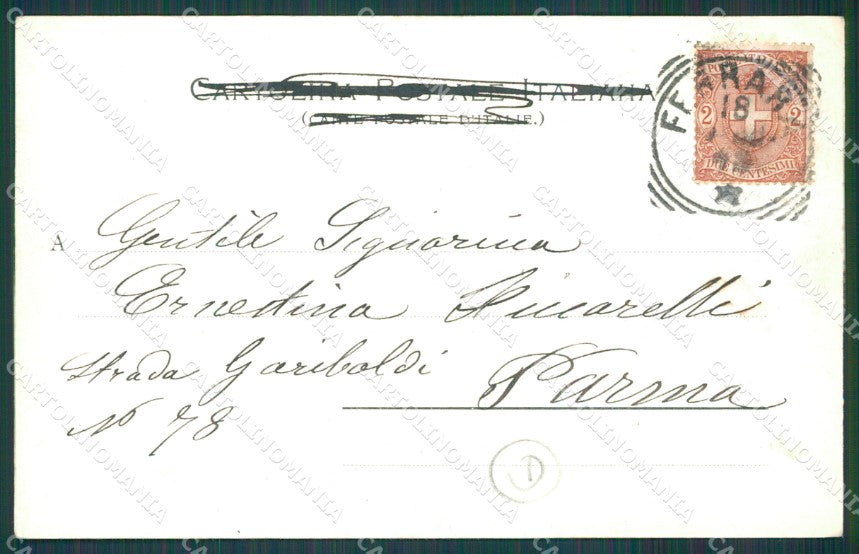 CARTOLINA POSTALE ITALIANA
(CARTE POSTALE D'ITALIE.)
FERRARA
18
2 2
DUE CENTESIMI
A Gentile Signorina
Ernestina
Strada Garibaldi Parma
N° 78
CARTOLINOMANIA